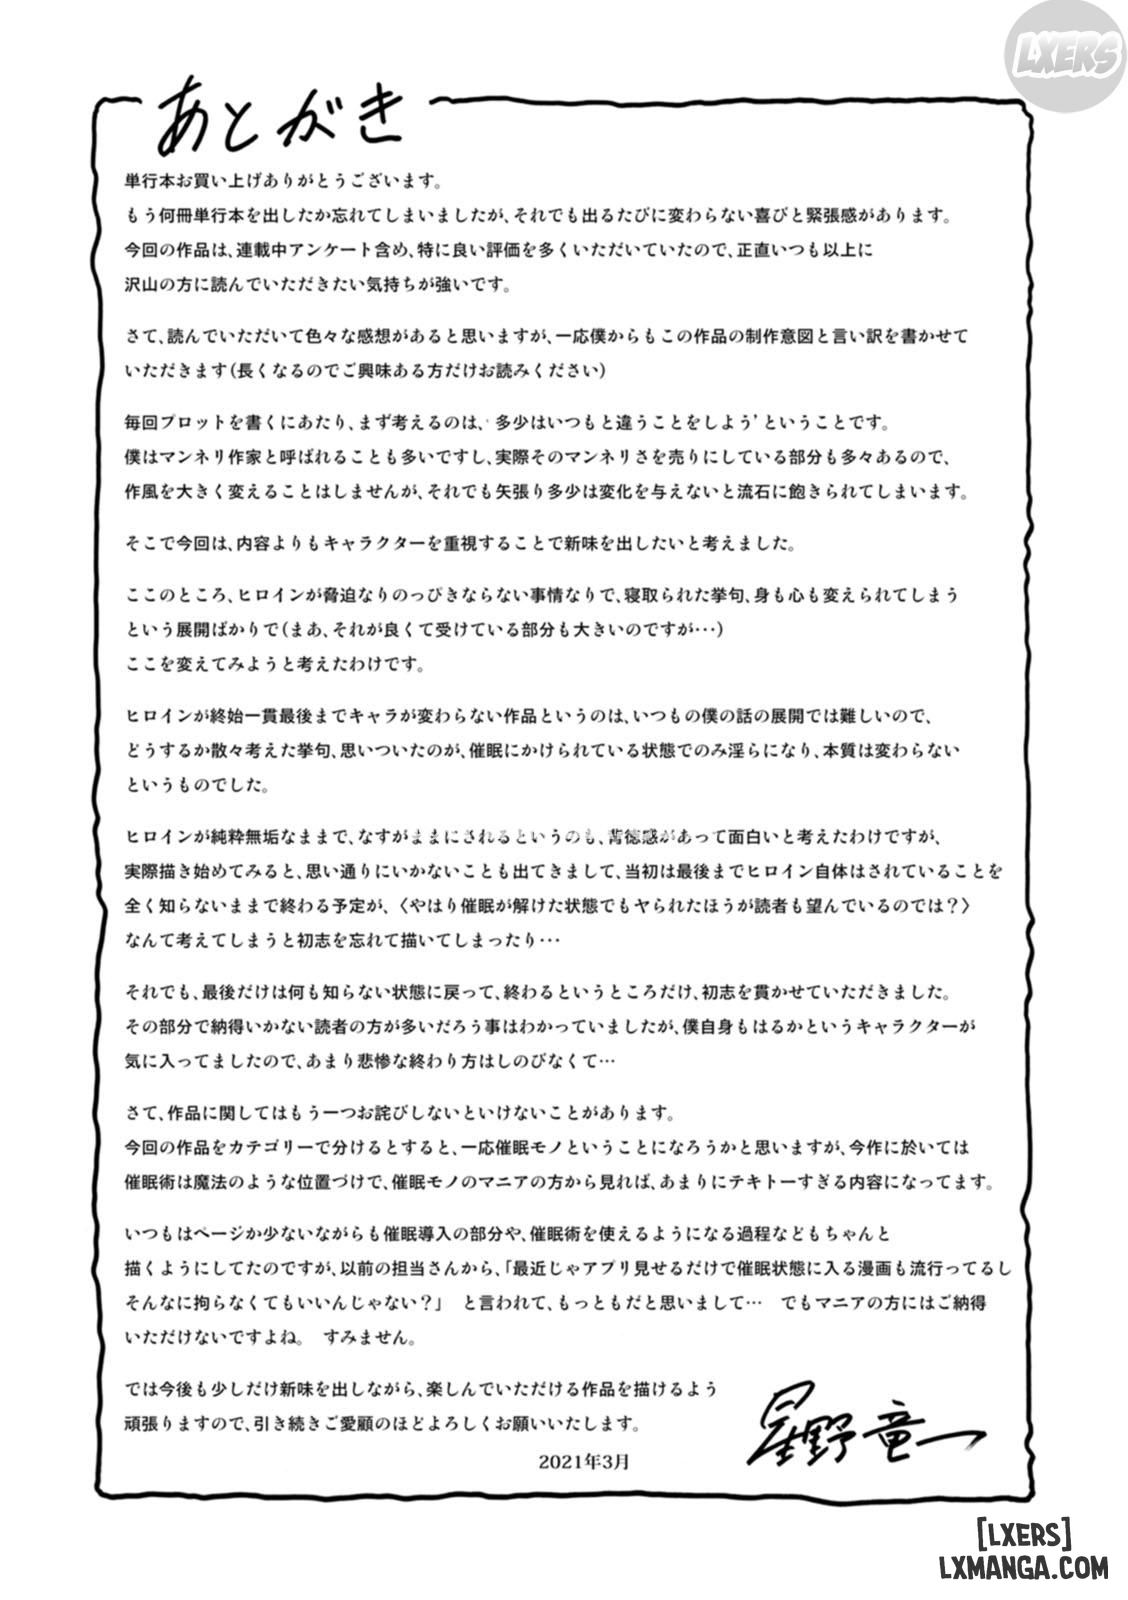 LXERS
あとがき
単行本お買い上げありがとうございます。
もう何冊単行本を出したか忘れてしまいましたが、それでも出るたびに変わらない喜びと緊張感があります。
今回の作品は、連載中アンケート含め、特に良い評価を多くいただいていたので、正直いつも以上に
沢山の方に読んでいただきたい気持ちが強いです。
さて、読んでいただいて色々な感想があると思いますが、一応僕からもこの作品の制作意図と言い訳を書かせて
いただきます(長くなるのでご興味ある方だけお読みください)
毎回プロットを書くにあたり、まず考えるのは、'多少はいつもと違うことをしよう'ということです。
僕はマンネリ作家と呼ばれることも多いですし、実際そのマンネリさを売りにしている部分も多々あるので、
作風を大きく変えることはしませんが、それでも矢張り多少は変化を与えないと流石に飽きられてしまいます。
そこで今回は、内容よりもキャラクターを重視することで新味を出したいと考えました。
ここのところ、ヒロインが脅迫なりのっぴきならない事情なりで、寝取られた挙句、身も心も変えられてしまう
という展開ばかりで(まあ、それが良くて受けている部分も大きいのですが・・・)
ここを変えてみようと考えたわけです。
ヒロインが終始一貫最後までキャラが変わらない作品というのは、いつもの僕の話の展開では難しいので、
どうするか散々考えた挙句、思いついたのが、催眠にかけられている状態でのみ淫らになり、本質は変わらない
というものでした。
ヒロインが純粋無垢なままで、なすがままにされるというのも、背徳感があって面白いと考えたわけですが、
実際描き始めてみると、思い通りにいかないことも出てきまして、当初は最後までヒロイン自体はされていることを
全く知らないままで終わる予定が、〈やはり催眠が解けた状態でもヤられたほうが読者も望んでいるのでは？〉
なんて考えてしまうと初志を忘れて描いてしまったり・・・
それでも、最後だけは何も知らない状態に戻って、終わるというところだけ、初志を貫かせていただきました。
その部分で納得いかない読者の方が多いだろう事はわかっていましたが、僕自身もはるかというキャラクターが
気に入ってましたので、あまり悲惨な終わり方はしのびなくて…
さて、作品に関してはもう一つお詫びしないといけないことがあります。
今回の作品をカテゴリーで分けるとすると、一応催眠モノということになろうかと思いますが、今作に於いては
催眠術は魔法のような位置づけで、催眠モノのマニアの方から見れば、あまりにテキトーすぎる内容になってます。
いつもはページが少ないながらも催眠導入の部分や、催眠術を使えるようになる過程などもちゃんと
描くようにしてたのですが、以前の担当さんから、「最近じゃアプリ見せるだけで催眠状態に入る漫画も流行ってるし
そんなに拘らなくてもいいんじゃない？」 と言われて、もっともだと思いまして… でもマニアの方にはご納得
いただけないですよね。 すみません。
では今後も少しだけ新味を出しながら、楽しんでいただける作品を描けるよう
頑張りますので、引き続きご愛顧のほどよろしくお願いいたします。
星野竜一
2021年3月
[LXERS]
LXMANGA.COM